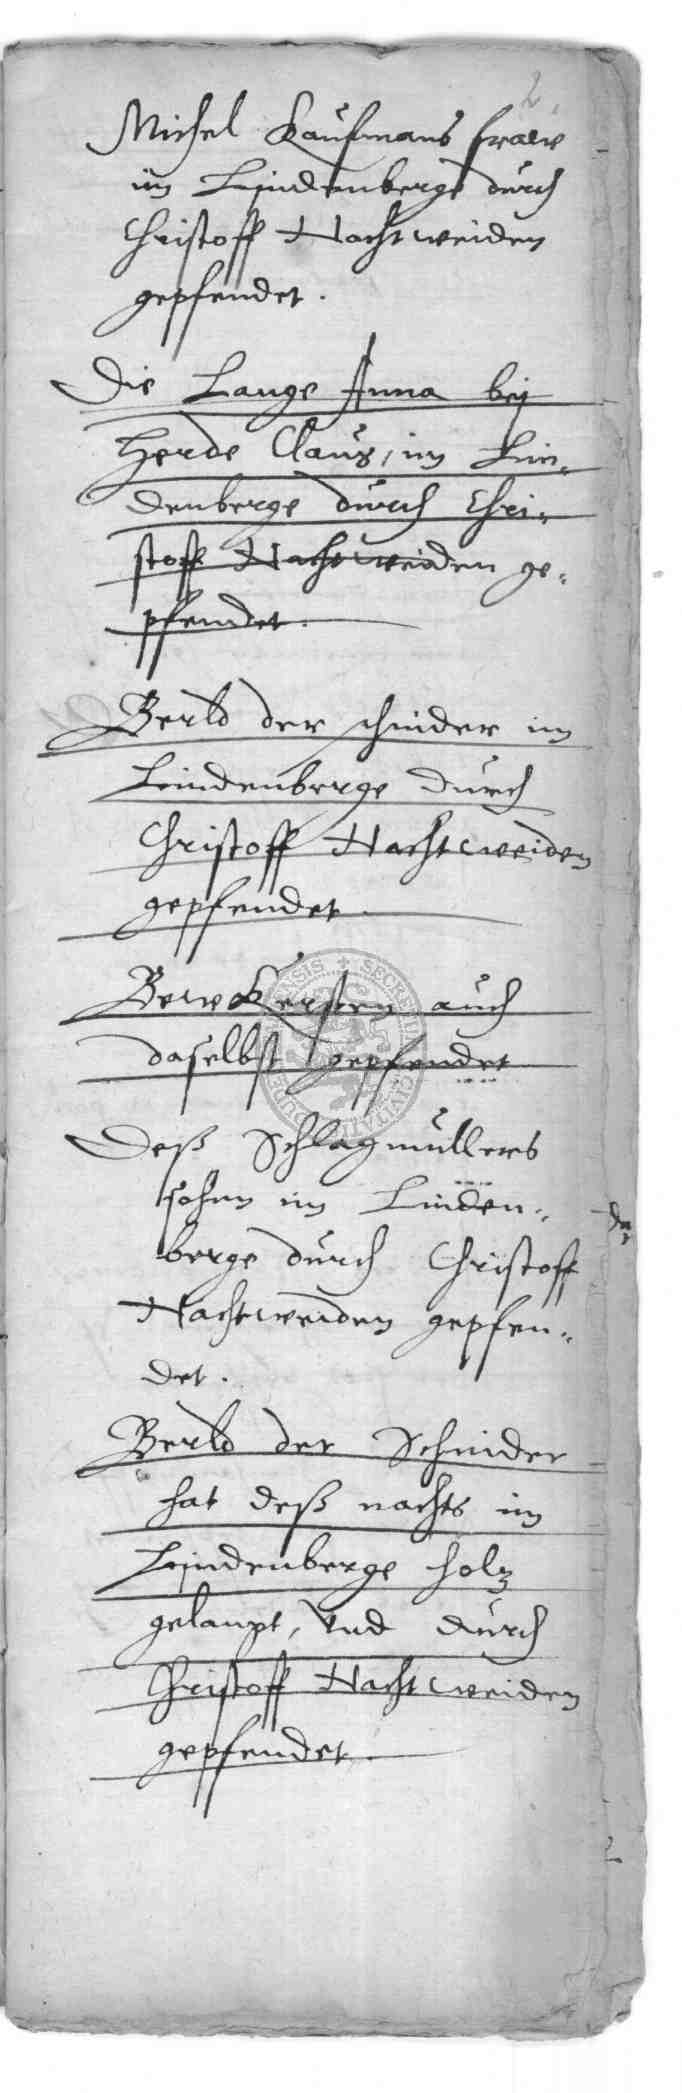 2
Michel Kaufmans fraw
im Lindenberge durch
Christoff Nachtweiden
gepfendet.
Die Lange Anna bey
Herde Claus, im Lin-
denberge durch Chri-
stoff Nachtweiden ge-
pfendet.
Berld der schnider im
Lindenberge durch
Christoff Nachtweiden
gepfendet.
auch
daselbst gepfendet
Deß Schlagmullers
sohnn im Linden-
berge durch Christoff
Nachtweiden gepfen-
det.
Berld der Schnider
hat deß nachts im
Lindenberge holz
gelangt, vnd durch
Christoff Nachtweiden
gepfendet.